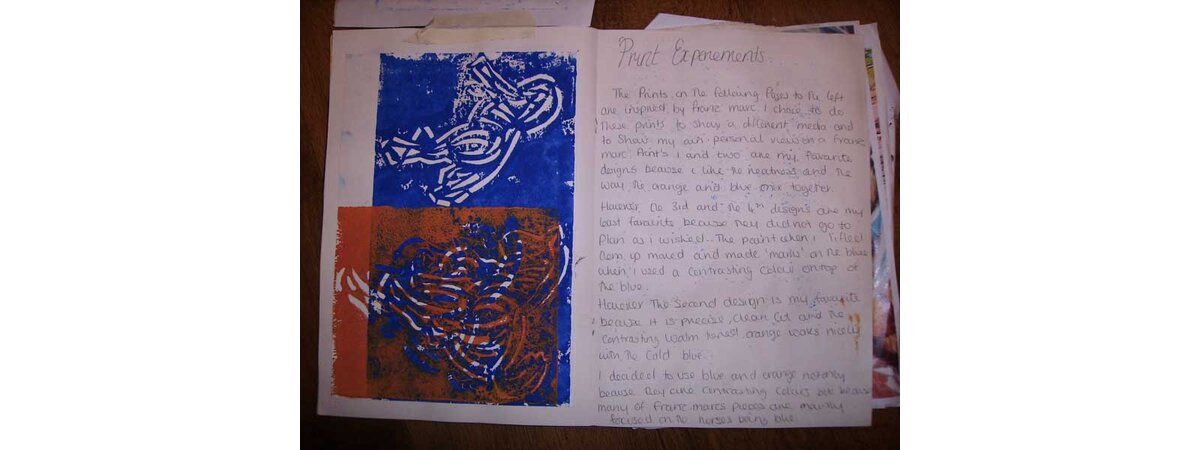 Print Experements
The Prints on the following Pages to the left
are inspired by Franz marc I chose to do
These prints to show a different media and
to show my own personal view on a Franz
marc. Print's 1 and two are my favarite
designs because i like the neatness and the
way the orange and blue mix together.
However the 3rd and the 4th designs are my
least favarite because they did not go to
Plan as i wished. The paint when I lifted
them up moved and made 'marks' on the blue
when I used a contrasting colour on top of
the blue.
However The Second design is my favourite
because it is precise, clean cut and the
contrasting warm orange works nicely
with the cold blue.
I decided to use blue and orange not only
because they are contrasting colours but because
many of Franz marcs pieces are mainly
focused on the horses being blue